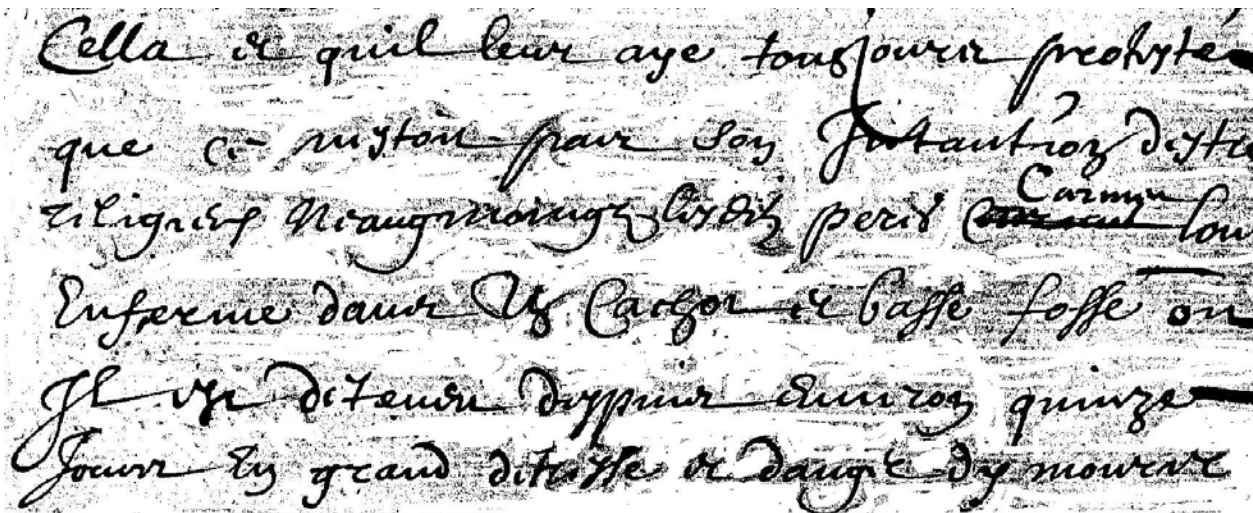 Cella et quil leur aye tousjours protesté
que ce nestoit par son Intantion destre
religieux Neaugmoings lesditz peres Carmes lont
Enfermé dans Un Cachot et basse fosse ou
Il est detenu despuis Environ quinze
Jours En grand detresse et danger dy mourir